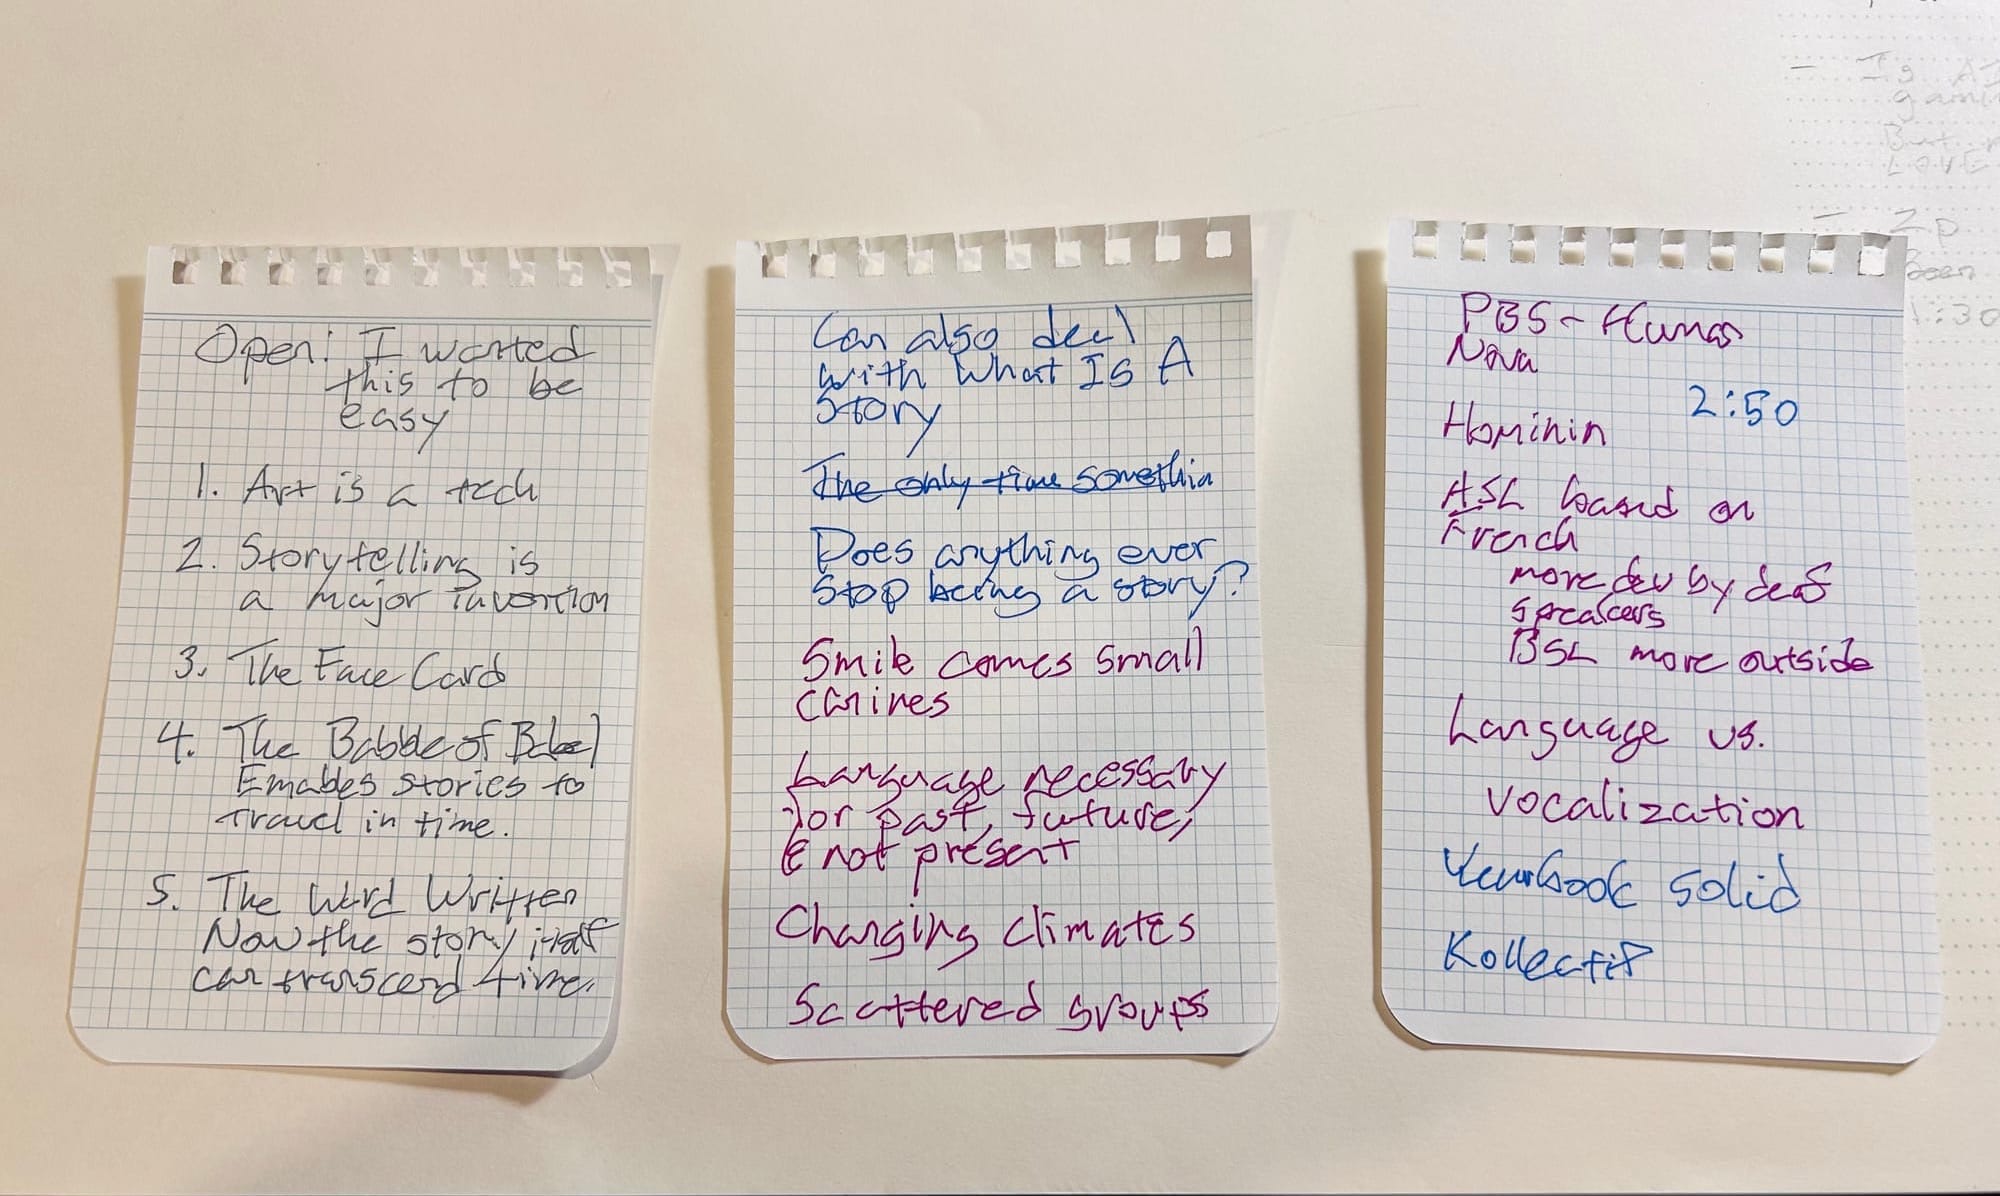 Open: I wanted
this to be
easy
1. Art is a tech
2. Storytelling is
a major invention
3. The Face Card
4. The Babble of Babel
Enables stories to
travel in time.
5. The Word Written
Now the story itself
can transcend time.
Can also deal
with What Is A
Story
The only time somethin
Does anything ever
stop being a story?
Smile comes small
canines
Language necessary
for past, future,
& not present
Changing climates
Scattered groups
PBS - Humans
Nova
2:50
Hominin
ASL based on
French
more dev by deaf
speakers
BSL more outside
Language vs.
vocalization
Yearbook solid
Kollectif
- Is AI
But
LOVE
- Zp
Been
1:30